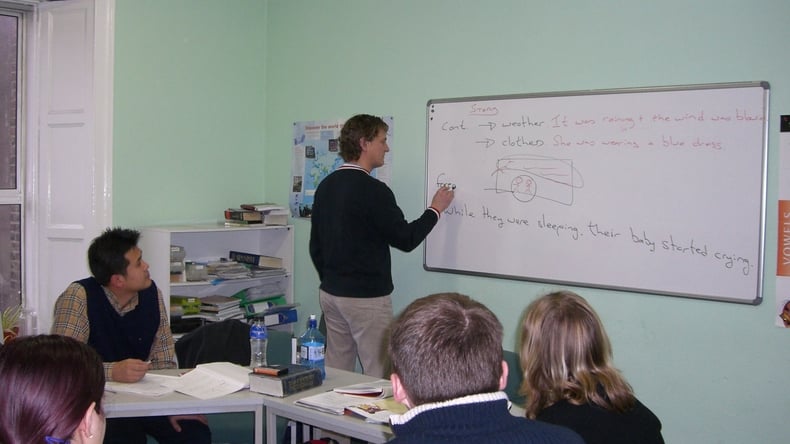 Discover the
Strong
Cont → weather. It was raining + the wind was
→ clothes She was wearing a blue dress.
while they were sleeping. their baby started crying.
VOWELS